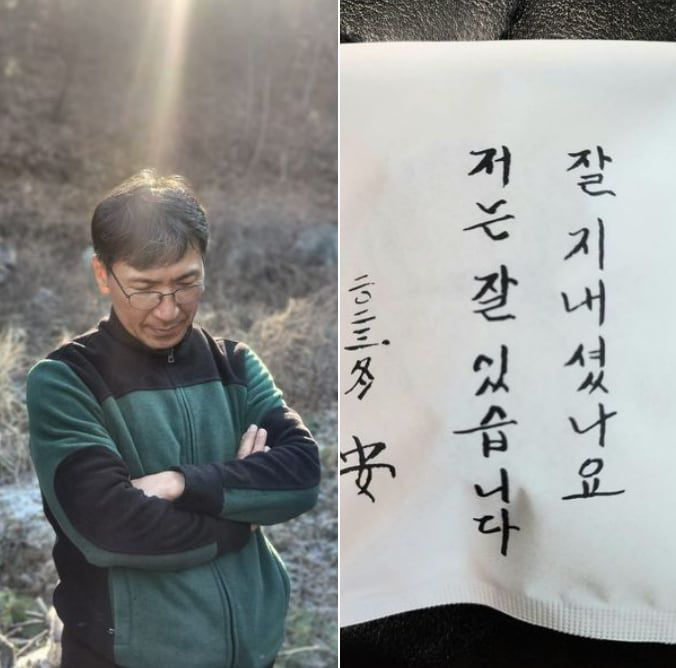 잘 지내셨나요
저는 잘 있습니다
二〇二三. 冬
安